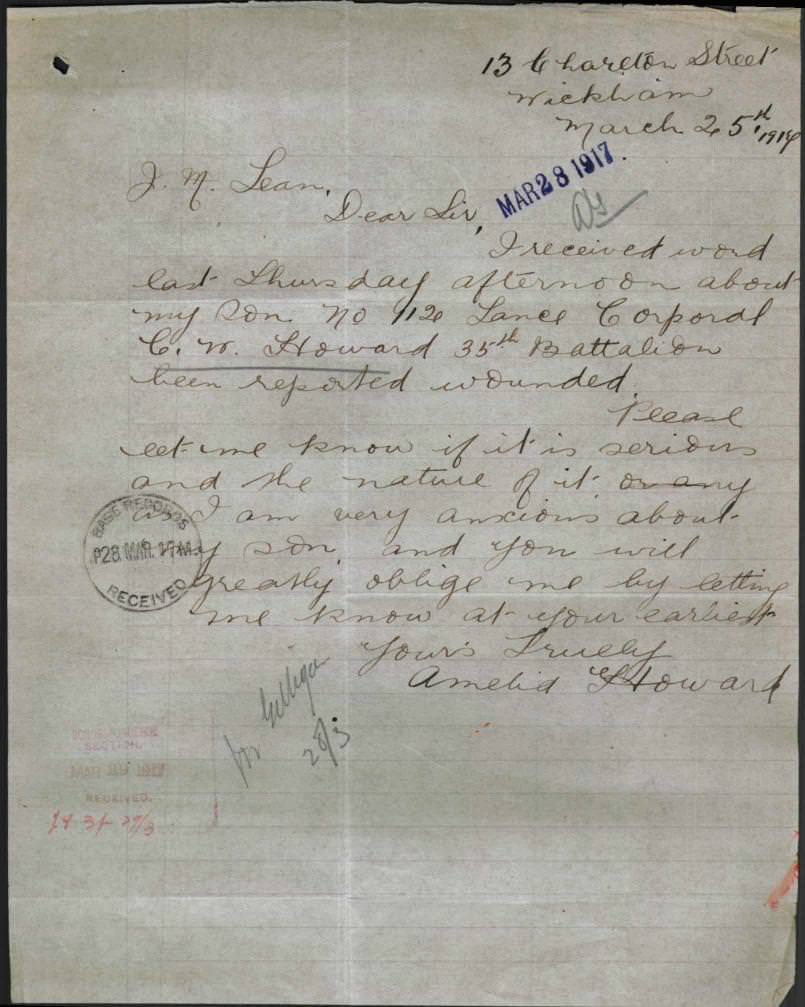 13 Charlton Street
Wickham
March 25th 1917
MAR 28 1917.
J. M. Lean,
Dear Sir,
I received word
last Thursday afternoon about
my son No 1126 Lance Corporal
C. W. Howard 35th Battalion
been reported wounded.
Please
let me know if it is serious
and the nature of it or any
as I am very anxious about
my son, and you will
greatly oblige me by letting
me know at your earliest
Your's Truely
Amelia Howard
BASE RECORDS
P28 MAR. 17 A.M.
RECEIVED
28/3
SECTION
RECEIVED.
29/3